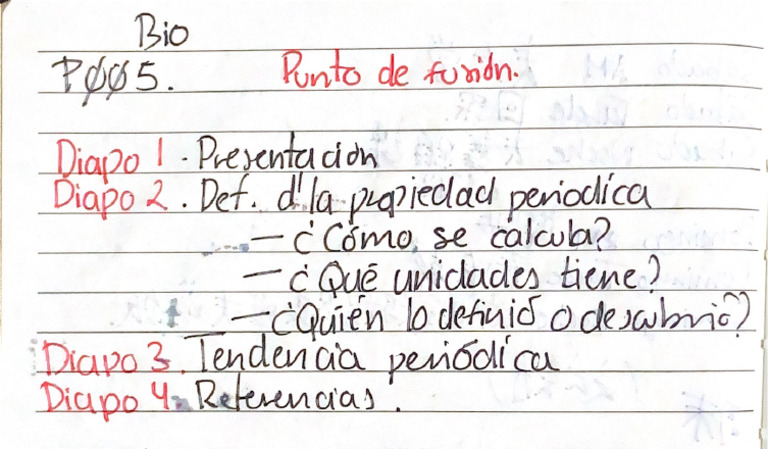 Bio
PØØ5. Punto de fusión.
Diapo 1. Presentación
Diapo 2. Def. d' la propiedad periodica
— ¿Cómo se calcula?
— ¿Qué unidades tiene?
— ¿Quién lo definió o descubrió?
Diapo 3. Tendencia periódica
Diapo 4. Referencias.